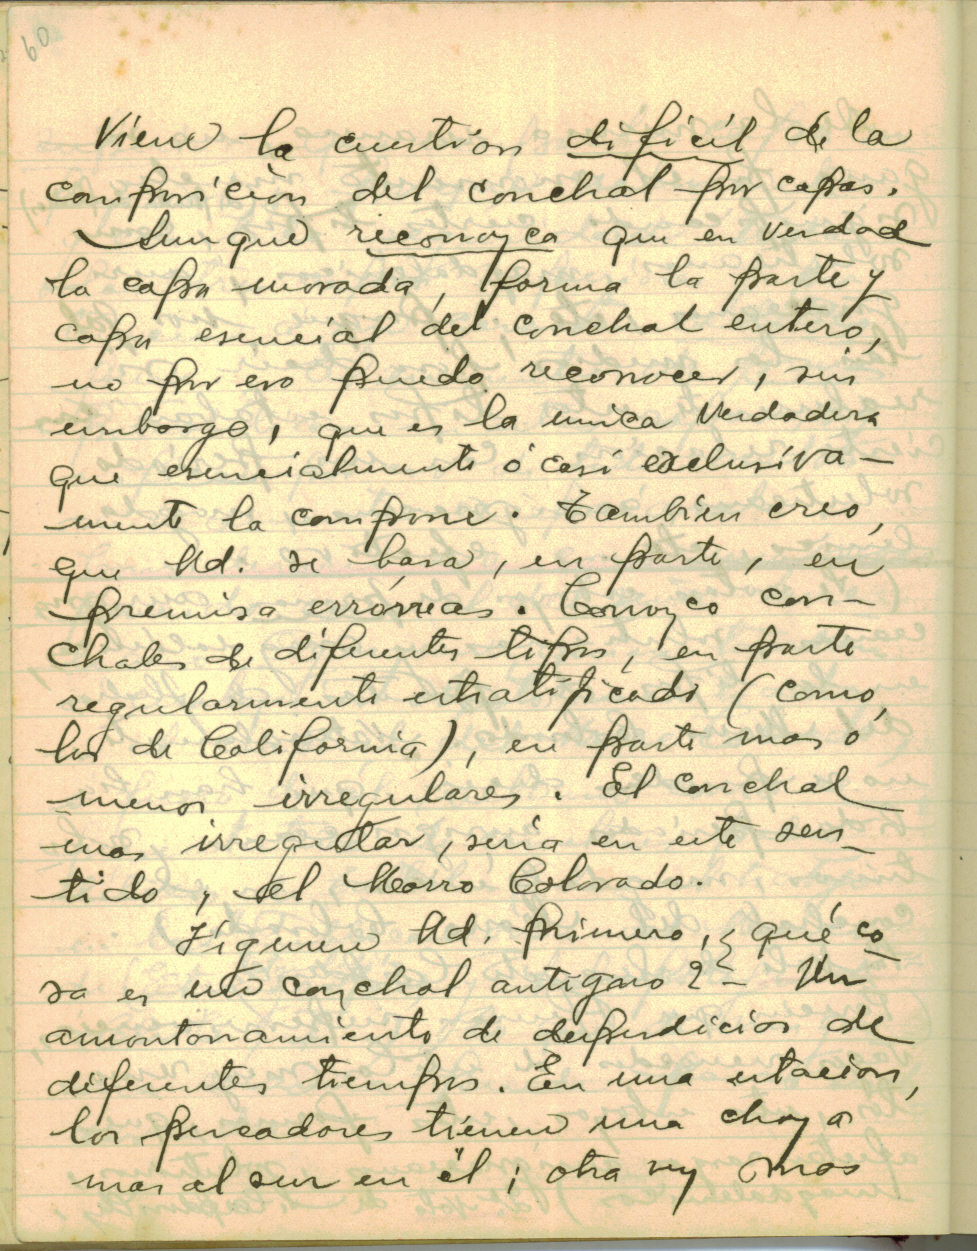 60
Viene la cuestion dificil de la
composicion del conchal por capas.
Aunque reconozca que en verdad
la capa morada, forma la parte y
capa esencial del conchal entero,
no por eso puedo reconocer, sin
embargo, que es la unica verdadera
que esencialmente ó casi exclusiva-
mente la compone. Tambien creo,
que Ud. se basa, en parte, en
premisa erróneas. Conozco con-
chales de diferentes tipos, en parte
regularmente estratificado (como,
los de California), en parte mas o
menos irregulares. El conchal
mas irregular, seria en este sen-
tido, el Morro Colorado.
Figurese Ud. primero, ¿ qué co-
sa es un conchal antiguo? - Un
amontonamiento de desperdicios de
diferentes tiempos. En una estacion,
los pescadores tienen una choza
mas al sur en él; otra vez mas